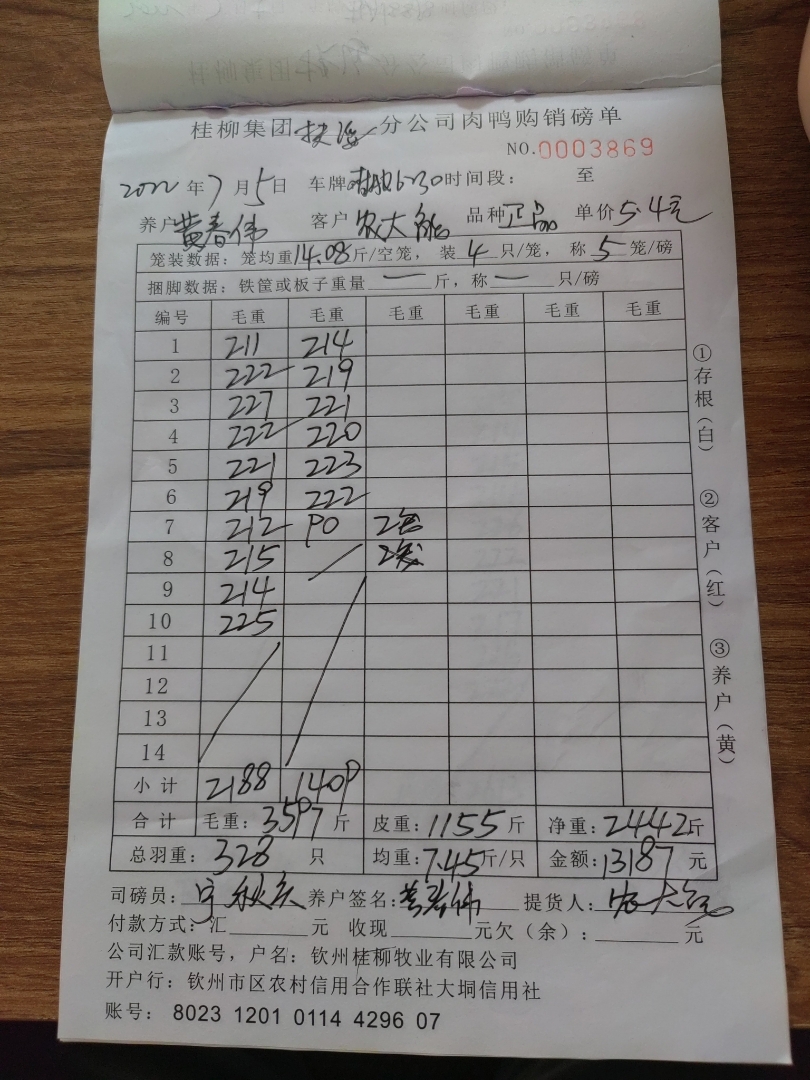 桂柳集团扶海分公司肉鸭购销磅单
NO.0003869
2022年7月5日 车牌 6-30时间段: 至
养户黄春伟 客户农大能 品种正品 单价5.4元
笼装数据:笼均重14.08斤/空笼,装4只/笼,称5笼/磅
捆脚数据:铁筐或板子重量一斤,称一只/磅
编号 毛重 毛重 毛重 毛重 毛重 毛重
1 211 214
2 222 219
3 227 221
4 222 220
5 221 223
6 219 222
7 212 90 2笼
8 215
9 214
10 225
11
12
13
14
小计 2188 1409
合计 毛重:3597斤 皮重:1155斤 净重:2442斤
总羽重:328只 均重:7.45斤/只 金额:13187元
司磅员: 养户签名:黄春伟 提货人:农大能
付款方式:汇 元 收现 元欠(余): 元
公司汇款账号,户名:钦州桂柳牧业有限公司
开户行:钦州市区农村信用合作联社大垌信用社
账号: 8023 1201 0114 4296 07
①存根(白)
②客户(红)
③养户(黄)